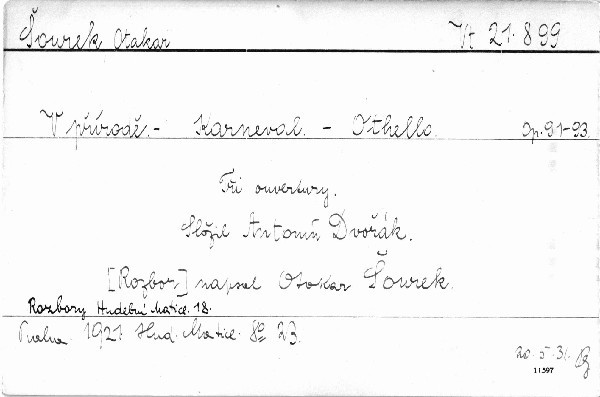 Šourek Otakar VA 21.899
V přírodě. - Karneval. - Othello. Op. 91-93.
Tři ouvertury.
Složil Antonín Dvořák.
[Rozbor] napsal Otokar Šourek.
Rozbory Hudební Matice. 18.
Praha 1921 Hud. Matice. 8° 23.
20. 5. 31.
11597